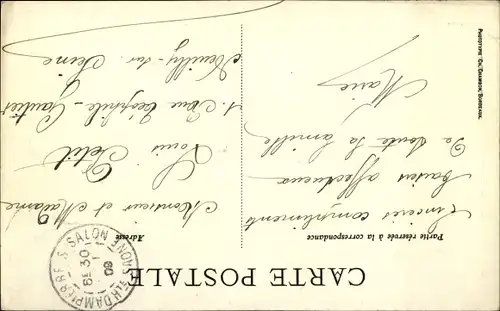 CARTE POSTALE
Partie réservée à la correspondance
Adresse
Sincères compliments
Baisers affectueux
De toute la famille
Marie
Monsieur et Madame
Louis Petit
1. Rue Théophile-Gautier
Neuilly-sur Seine
DAMPIERRE S SALON
HTE MARNE
8E 30
09
PHOTOTYPIE CH. CHAMBON, BORDEAUX.